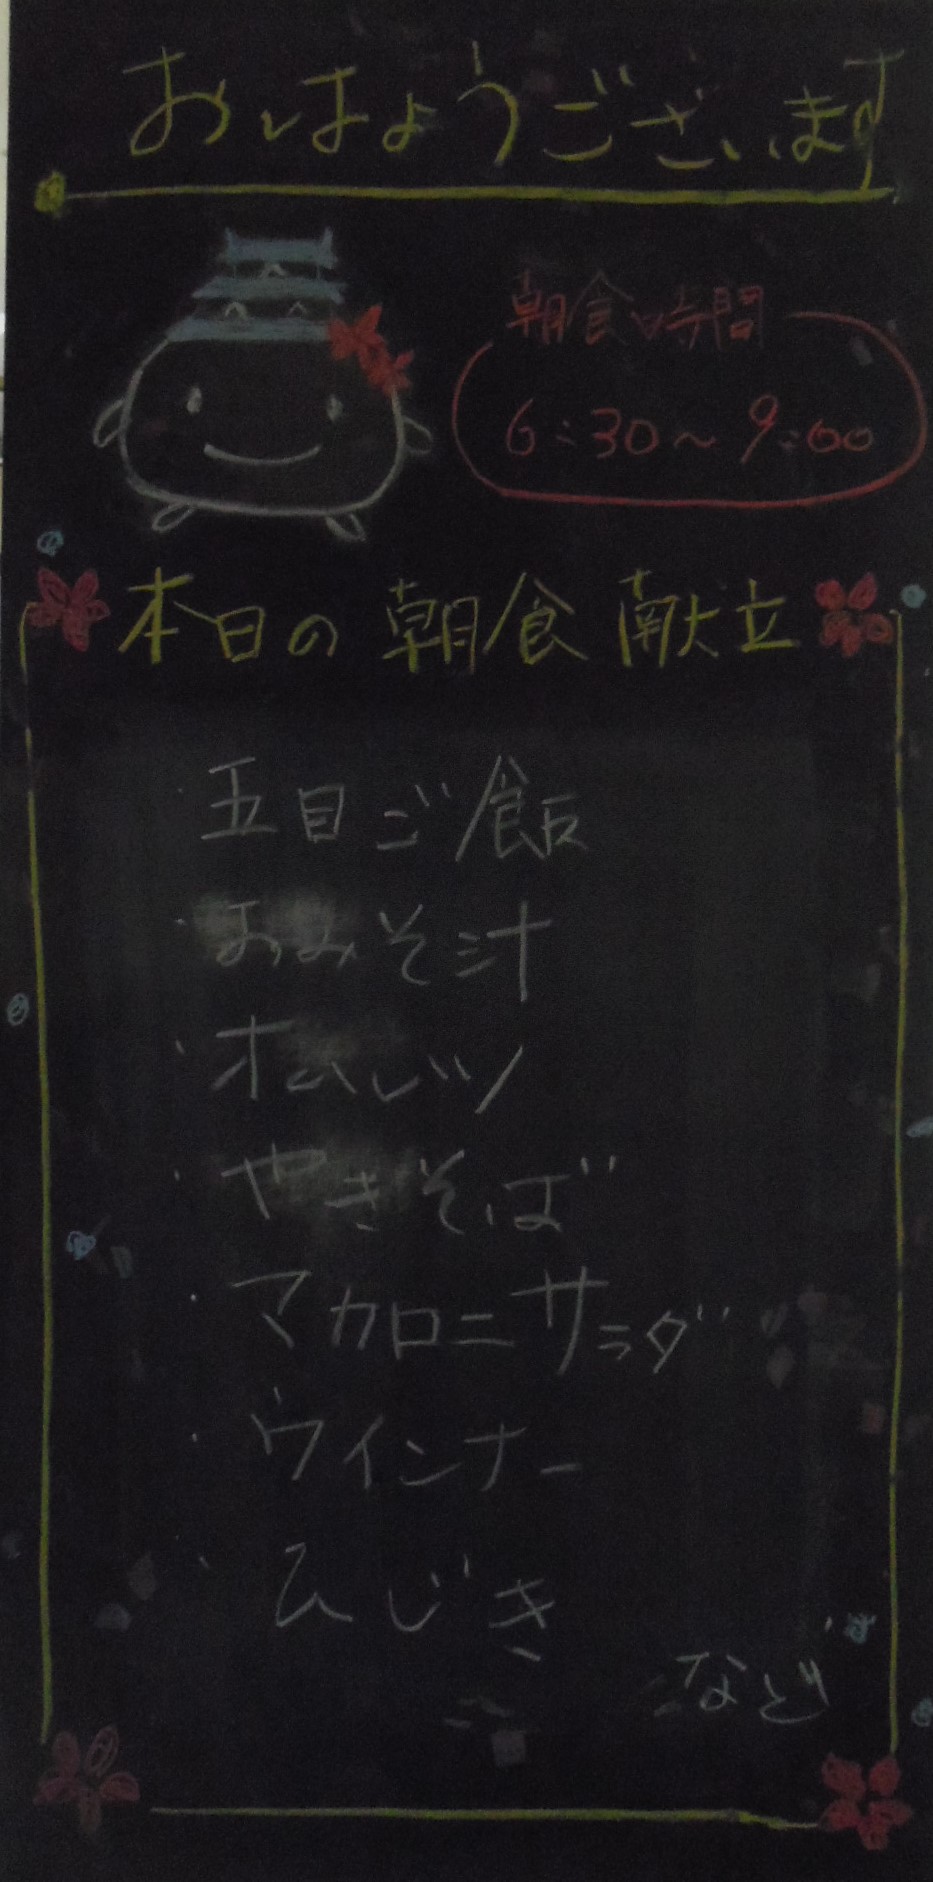 おはようございます
朝食時間
6:30～9:00
本日の朝食献立
・五目ご飯
・おみそ汁
・オムレツ
・やきそば
・マカロニサラダ
・ウインナー
・ひじき
など